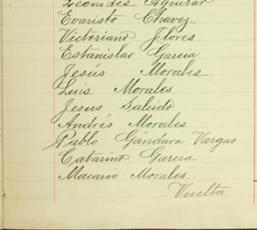 Leonides Aguilar
Evaristo Chavez
Victoriano Flores
Estanislao Garcia
Jesús Morales
Luis Morales
Jesus Salcido
Andrés Morales
Pablo Gándara Vargas
Catarino Garcia
Macario Morales
Vuelta